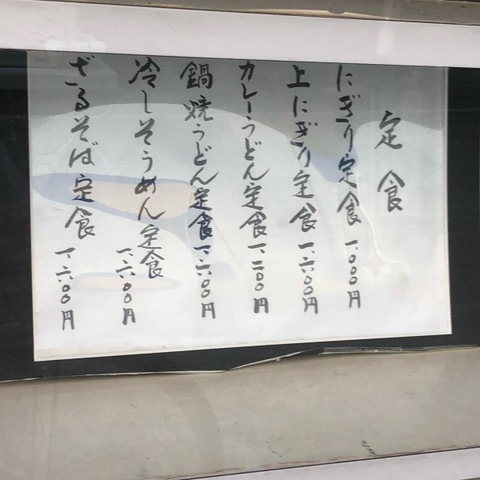 定食
にぎり定食 一、〇〇〇円
上にぎり定食 一、六〇〇円
カレーうどん定食 一、二〇〇円
鍋焼うどん定食 一、六〇〇円
冷しそうめん定食 一、六〇〇円
ざるそば定食 一、六〇〇円